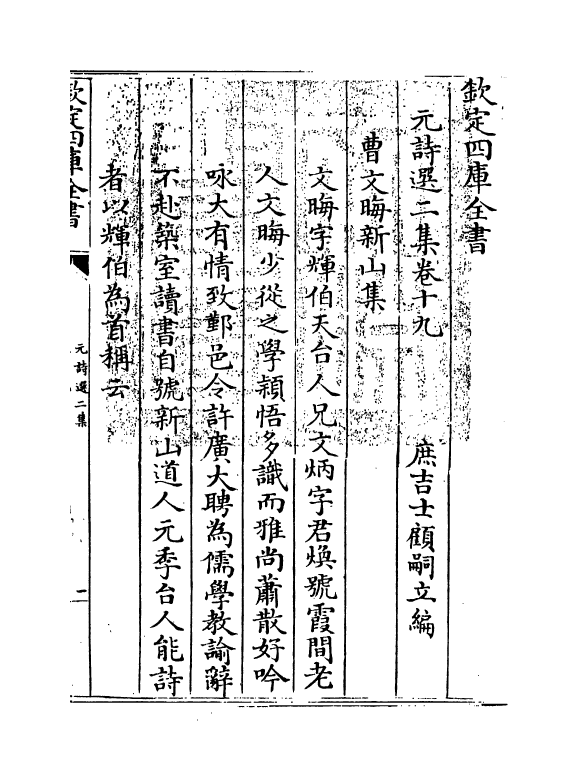 欽定四庫全書
元詩選二集卷十九
庶吉士顧嗣立編
曹文晦新山集
文晦字輝伯天台人兄文炳字君煥號霞間老
人文晦少從之學穎悟多識而雅尚蕭散好吟
咏大有情致鄞邑令許廣大聘為儒學教諭辭
不赴築室讀書自號新山道人元季台人能詩
者以輝伯為首稱云
欽定四庫全書
元詩選二集